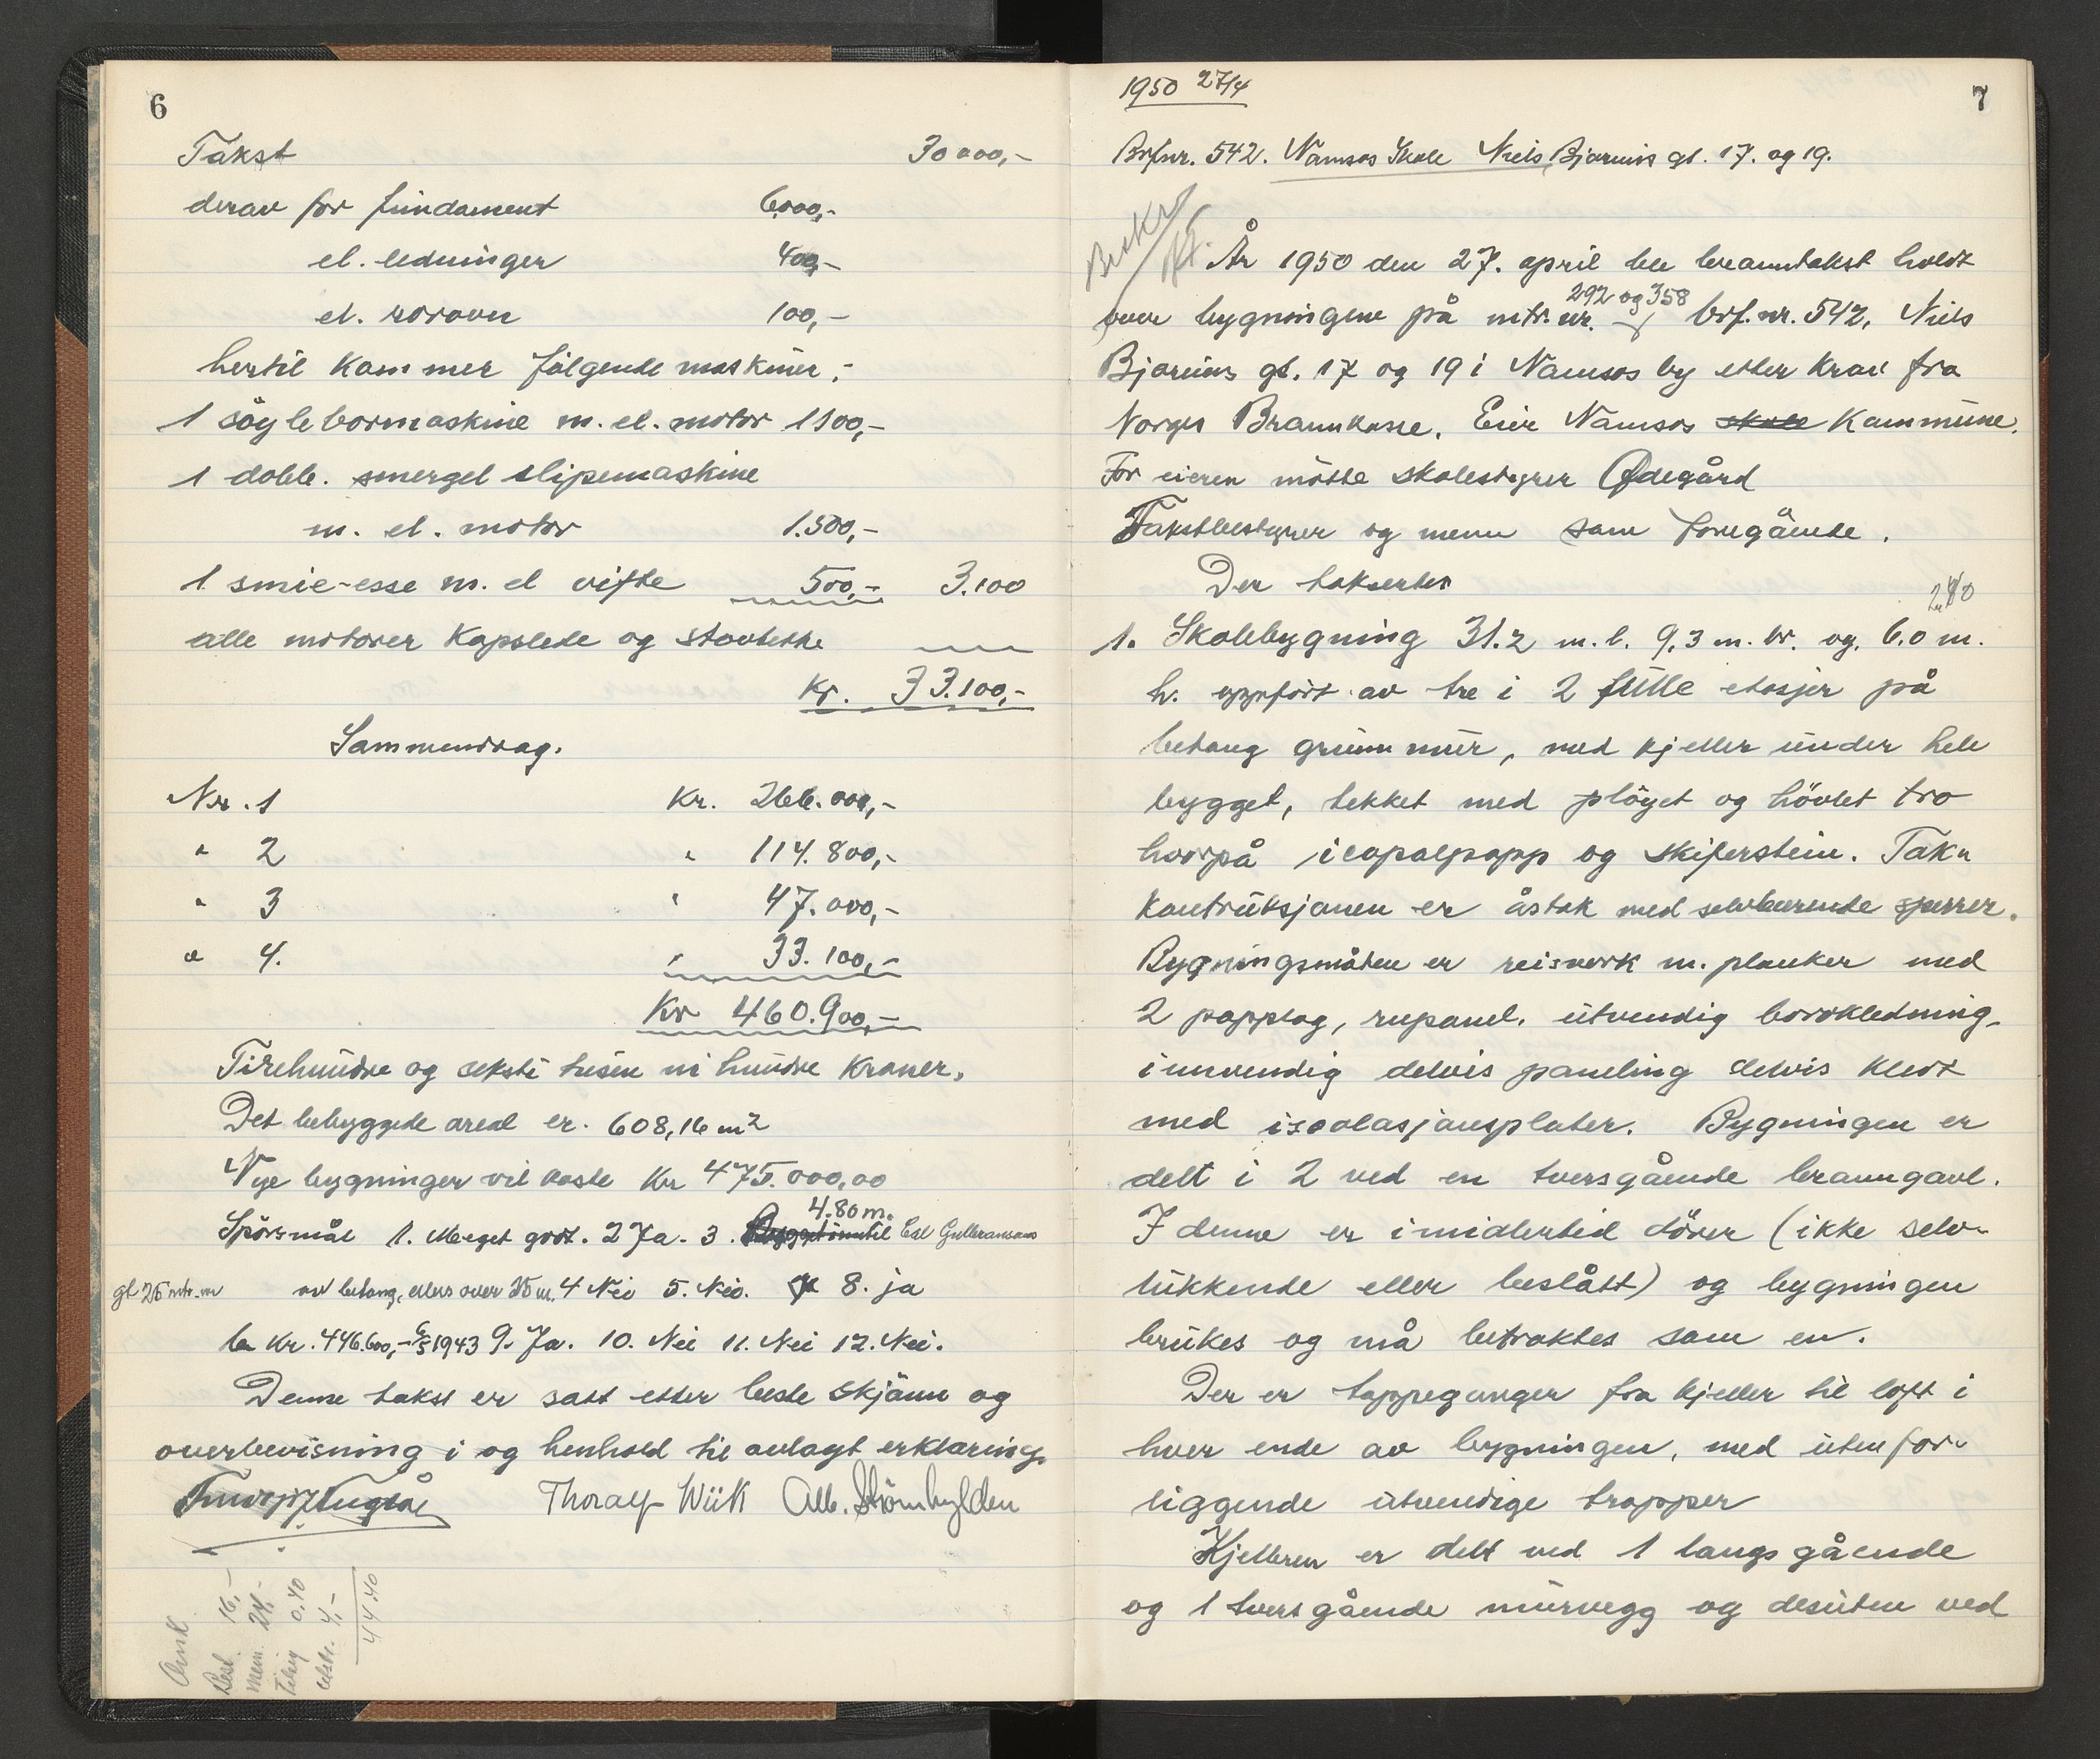 6
Takst 30000,-
derav for fundament 6000,-
el. ledninger 400,-
el. rørovn 100,-
hertil kommer følgende maskiner:
1 søyleboremaskine m. el. motor 1100,-
1 dobb. smergel slipemaskine
m. el. motor 1.500,-
1 smie-esse m. el vifte 500,- 3.100
alle motorer kapslede og støvtette
Kr. 33.100,-
Sammendrag.
Nr. 1 Kr. 266.000,-
" 2 " 114.800,-
" 3 " 47.000,-
" 4. " 33.100,-
Kr 460.900,-
Firehundre og seksti tusen ni hundre kroner.
Det bebyggede areal er. 608,16 m2
Nye bygninger vil koste Kr 475.000,00
4.80 m.
Spørsmål 1. Meget godt. 2 Ja. 3. Esl Gulbransons
gt 25 mtr. m av betong, ellers over 25 m. 4 Nei 5. Nei. 8. ja
Kr. 446.600,- 6/5 1943 9. Ja. 10. Nei 11. Nei 12. Nei.
Denne takst er satt etter beste skjønn og
overbevisning i og henhold til avlagt erklæring.
Thoralf Wiik Alb. Strømhylden
Besl. 16,-
Menn. 24,-
0.40
4,-
44.40
1950 27/4
7
Brfnr. 542. Namsos Skole Niels Bjørums gt. 17. og 19.
År 1950 den 27. april ble branntakst holdt
292 og 358
over bygningene på mtr. nr. brf. nr. 542, Niels
Bjørums gt. 17 og 19 i Namsos by etter krav fra
Norges Brannkasse. Eier Namsos skole Kommune.
For eieren møtte skolestyrer Ødegård
Takstbestyrer og menn som foregående.
Der taksertes
280
1. Skolebygning 31.2 m. l. 9,3 m. br. og. 6.0 m.
h. oppført av tre i 2 fulle etasjer på
betong grunnmur, med kjeller under hele
bygget, tekket med pløyet og høvlet tro
hvorpå icopalpapp og skiferstein. Tak-
kontruksjonen er åstak med selvbærende sperrer.
Bygningsmåten er reisverk m. planker med
2 papplag, rupanel. utvendig bordkledning,
innvendig delvis paneling delvis kledt
med isoolasjonsplater. Bygningen er
delt i 2 ved en tversgående branngavl.
I denne er imidlertid dører (ikke selv-
lukkende eller beslått) og bygningen
brukes og må betraktes som en.
Der er trappeganger fra kjeller til loft i
hver ende av bygningen, med utenfor-
liggende utvendige trapper
Kjelleren er delt ved 1 langsgående
og 1 tversgående murvegg og desuten ved